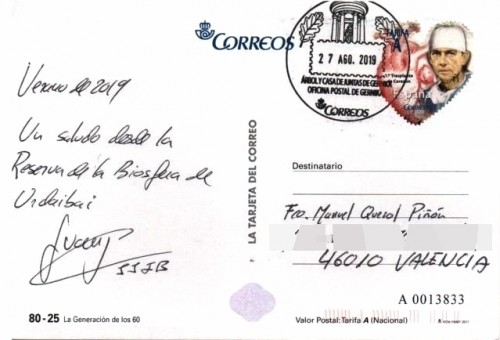 Verano de 2019
Un saludo desde la
Reserva de la Biosfera de
Urdaibai
80-25 La Generación de los 60
LA TARJETA DEL CORREO
CORREOS
27 AGO. 2019
ÁRBOL Y CASA DE JUNTAS DE GERNIKA
OFICINA POSTAL DE GERNIKA
CORREOS
TARIFA
A
España
Destinatario
Fco. Manuel Querol Piñón
46010 VALENCIA
A 0013833
Valor Postal: Tarifa A (Nacional)